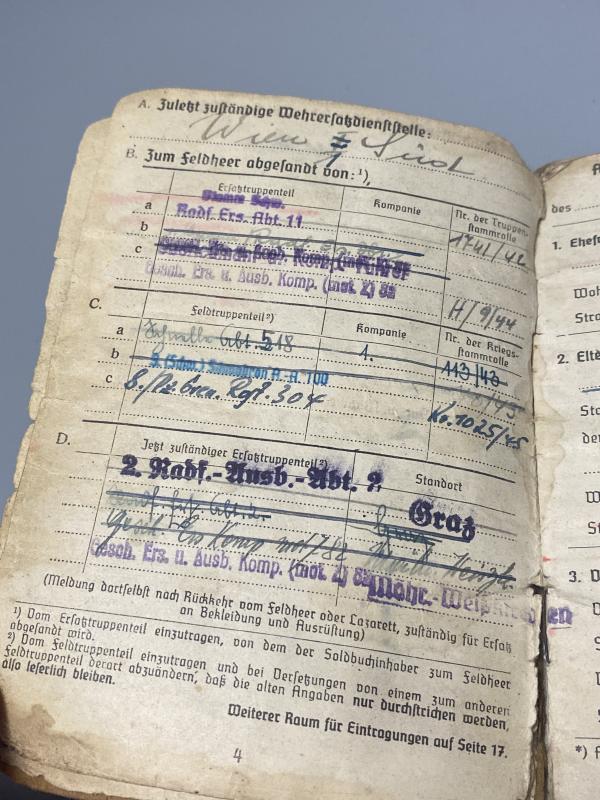 A. Zuletzt zuständige Wehrersatzdienststelle:
Wien I Süd
1
B. Zum Feldheer abgesandt von: ¹),
Ersatztruppenteil
Kompanie
Nr. der Truppen-
stammrolle
a Radf. Ers. Abt. 11
1741/42
b
c
Gesch. Ers. u. Ausb. Komp. (mot. Z) 82
H/9/44
C.
Feldtruppenteil²)
Kompanie
Nr. der Kriegs-
stammrolle
a Schnelle Abt. 518
1.
113/43
b 3. (Schw.) Schwadron A. A. 100
c 8./Pz Gren. Rgt. 304
No. 1025/45
D.
Jetzt zuständiger Ersatztruppenteil²)
Standort
2. Radf.-Ausb.-Abt. 2
Graz
Gesch. Ers Komp mot Z 82
Gesch. Ers. u. Ausb. Komp. (mot. Z) 82
Mähr.-Weißkirchen
(Meldung dortselbst nach Rückkehr vom Feldheer oder Lazarett, zuständig für Ersatz
an Bekleidung und Ausrüstung)
¹) Vom Ersatztruppenteil einzutragen, von dem der Soldbuchinhaber zum Feldheer
abgesandt wird.
²) Vom Feldtruppenteil einzutragen und bei Versetzungen von einem zum anderen
Feldtruppenteil derart abzuändern, daß die alten Angaben nur durchstrichen werden,
also leserlich bleiben.
Weiterer Raum für Eintragungen auf Seite 17.
4
des
1. Ehef
Woh
Stra
2. Elte
Sta
der
W
St
3. D
*) f